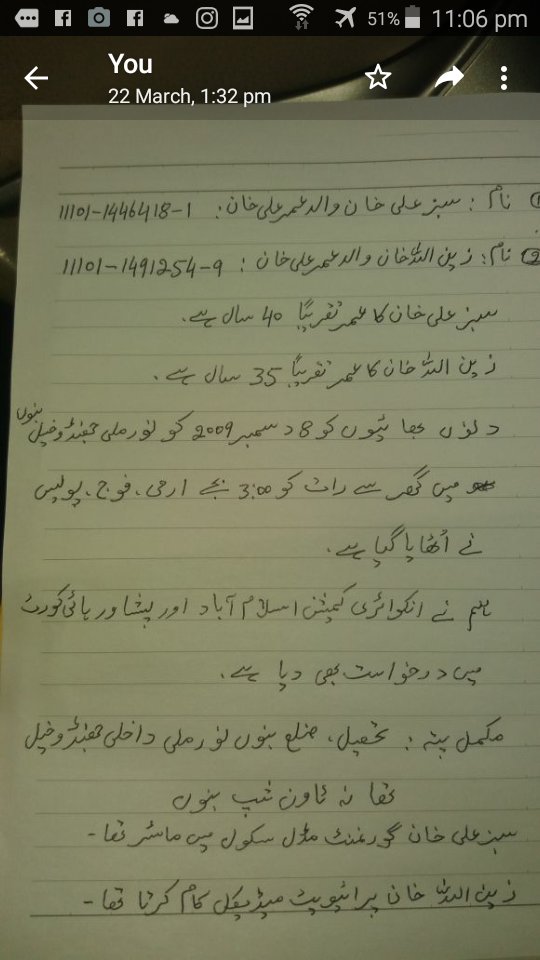 51% 11:06 pm
You
22 March, 1:32 pm
① نام: سبز علی خان والد عمر علی خان: 11101-1446418-1
② نام: زین اللہ خان والد عمر علی خان: 11101-1491254-9
سبز علی خان کا عمر تقریباً 40 سال ہے۔
زین اللہ خان کا عمر تقریباً 35 سال ہے۔
دونوں بھائیوں کو 8 دسمبر 2009 کو نور ملی جھنڈوخیل بنوں
میں گھر سے رات کو 3:00 بجے ارمی، فوج، پولیس
نے اُٹھایا گیا ہے۔
ہم نے انکوائری کمیشن اسلام آباد اور پشاور ہائی کورٹ
میں درخواست بھی دیا ہے۔
مکمل پتہ: تحصیل، ضلع بنوں نور ملی داخلی جھنڈوخیل
تھانہ ٹاون شپ بنوں
سبز علی خان گورنمنٹ مڈل سکول میں ماسٹر تھا۔
زین اللہ خان پرائیویٹ میڈیکل کام کرتا تھا۔